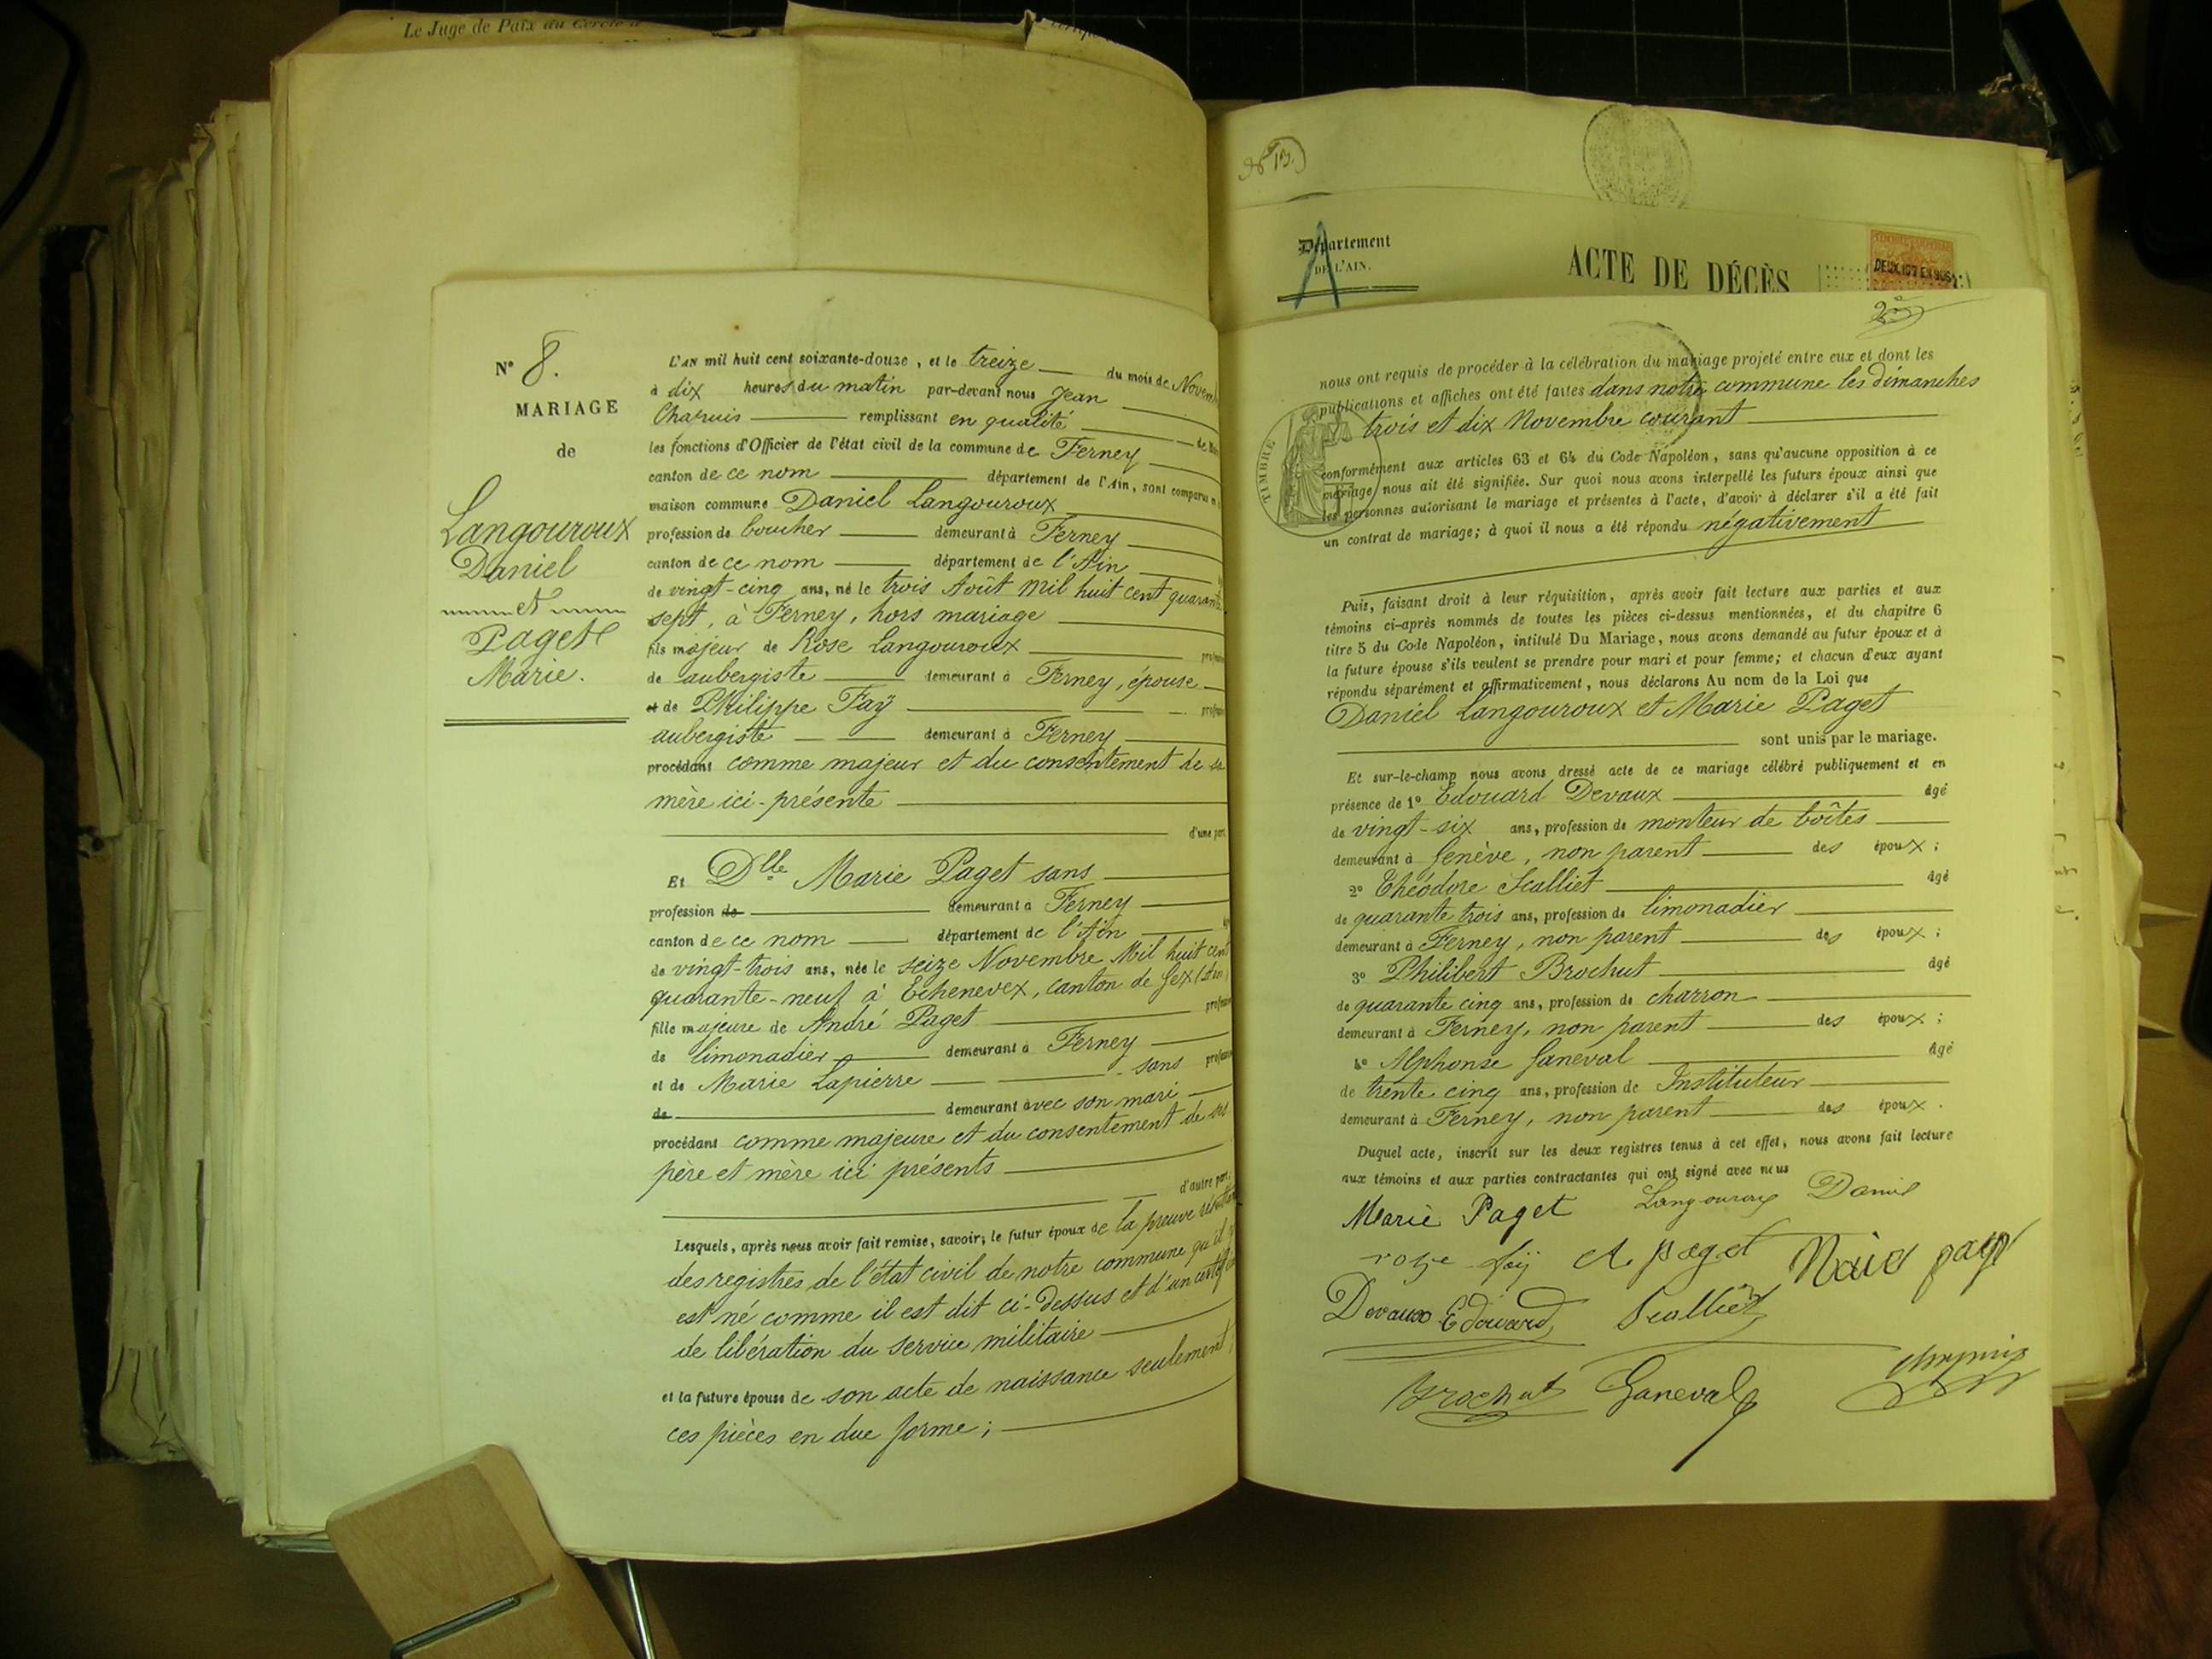 Le Juge de Paix du Cercle
N° 8.
MARIAGE
de
Langouroux
Daniel
et
Paget
Marie.
L'AN mil huit cent soixante-douze, et le treize du mois de Novem
à dix heures du matin par-devant nous Jean
Chapuis remplissant en qualité de
les fonctions d'Officier de l'état civil de la commune de Ferney
canton de ce nom département de l'Ain, sont comparus
maison commune Daniel Langouroux
profession de boucher demeurant à Ferney
canton de ce nom département de l'Ain
de vingt-cinq ans, né le trois Août mil huit cent quarante
sept, à Ferney, hors mariage
fils majeur de Rose Langouroux
de aubergiste demeurant à Ferney, épouse
et de Philippe Faÿ
aubergiste demeurant à Ferney
procédant comme majeur et du consentement de sa
mère ici-présente
d'une part
Et Dlle Marie Paget sans
profession de demeurant à Ferney
canton de ce nom département de l'Ain
de vingt-trois ans, née le seize Novembre Mil huit cent
quarante-neuf à Echenevex, canton de Gex (Ain)
fille majeure de André Paget
de limonadier demeurant à Ferney
et de Marie Lapierre sans
de demeurant avec son mari
procédant comme majeure et du consentement de ses
père et mère ici présents
d'autre part;
Lesquels, après nous avoir fait remise, savoir; le futur époux de la preuve
des registres de l'état civil de notre commune qu'il
est né comme il est dit ci-dessus et d'un
de libération du service militaire
et la future épouse de son acte de naissance seulement
ces pièces en due forme;
N° 13.
Département
DE L'AIN.
A
ACTE DE DÉCÈS
2e
TIMBRE
nous ont requis de procéder à la célébration du mariage projeté entre eux et dont les
publications et affiches ont été faites dans notre commune les dimanches
trois et dix Novembre courant
conformément aux articles 63 et 64 du Code Napoléon, sans qu'aucune opposition à ce
mariage nous ait été signifiée. Sur quoi nous avons interpellé les futurs époux ainsi que
les personnes autorisant le mariage et présentes à l'acte, d'avoir à déclarer s'il a été fait
un contrat de mariage; à quoi il nous a été répondu négativement
Puis, faisant droit à leur réquisition, après avoir fait lecture aux parties et aux
témoins ci-après nommés de toutes les pièces ci-dessus mentionnées, et du chapitre 6
titre 5 du Code Napoléon, intitulé Du Mariage, nous avons demandé au futur époux et à
la future épouse s'ils veulent se prendre pour mari et pour femme; et chacun d'eux ayant
répondu séparément et affirmativement, nous déclarons Au nom de la Loi que
Daniel Langouroux et Marie Paget
sont unis par le mariage.
Et sur-le-champ nous avons dressé acte de ce mariage célébré publiquement et en
présence de 1° Edouard Devaux âgé
de vingt-six ans, profession de monteur de boîtes
demeurant à Genève, non parent des époux;
2° Théodore Scalliet âgé
de quarante trois ans, profession de limonadier
demeurant à Ferney, non parent des époux;
3° Philibert Brochut âgé
de quarante cinq ans, profession de charron
demeurant à Ferney, non parent des époux;
4° Alphonse Ganeval âgé
de trente cinq ans, profession de Instituteur
demeurant à Ferney, non parent des époux.
Duquel acte, inscrit sur les deux registres tenus à cet effet, nous avons fait lecture
aux témoins et aux parties contractantes qui ont signé avec nous
Marie Paget Langouroux Daniel
roze fäy A paget
Devaux Edouard Scalliet
Brochut Ganeval Chapuis